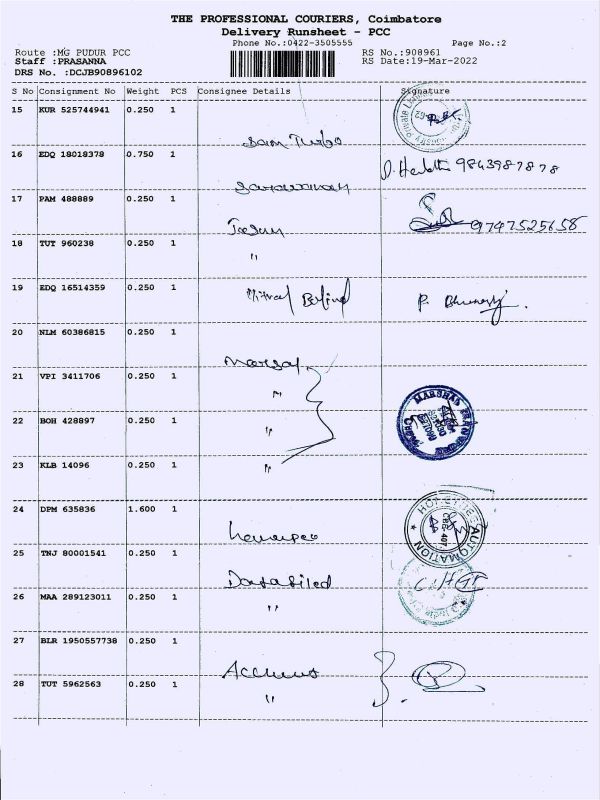 THE PROFESSIONAL COURIERS, Coimbatore
Delivery Runsheet - PCC
Phone No.:0422-3505555
Page No.:2
Route :MG PUDUR PCC
RS No.:908961
Staff :PRASANNA
RS Date:19-Mar-2022
DRS No. :DCJB90896102
S No Consignment No Weight PCS Consignee Details Signature
15 KUR 525744941 0.250 1
Sam Turbo
16 EDQ 18018378 0.750 1
9843987878
Saravanan
17 PAM 488889 0.250 1
9747525658
18 TUT 960238 0.250 1
"
19 EDQ 16514359 0.250 1
20 NLM 60386815 0.250 1
21 VPI 3411706 0.250 1
"
22 BOH 428897 0.250 1
"
23 KLB 14096 0.250 1
"
24 DPM 635836 1.600 1
AUTOMATION
25 TNJ 80001541 0.250 1
26 MAA 289123011 0.250 1
"
27 BLR 1950557738 0.250 1
28 TUT 5962563 0.250 1
"